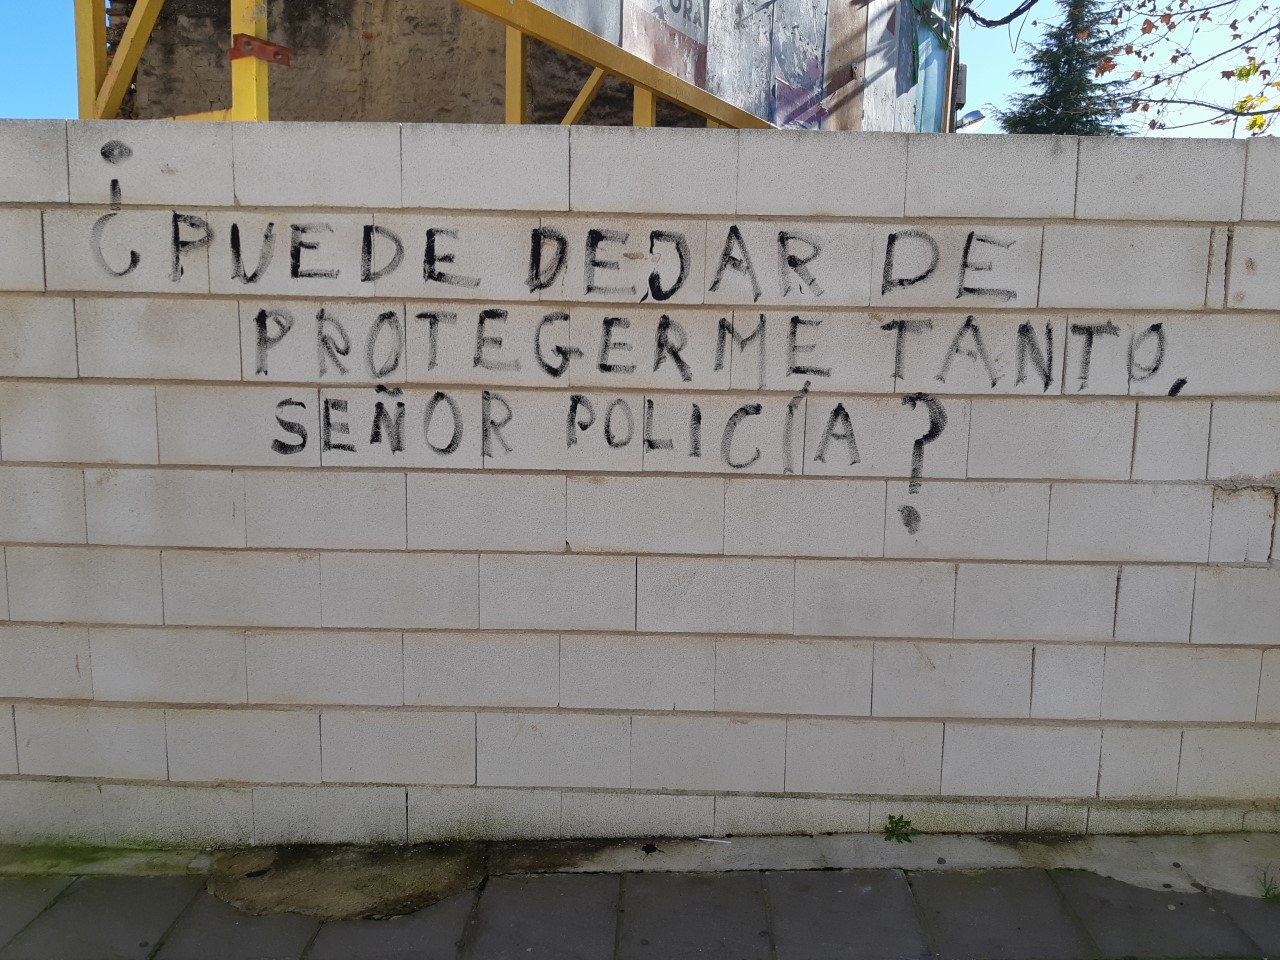 ORA
¿PUEDE DEJAR DE
PROTEGERME TANTO,
SEÑOR POLICÍA?